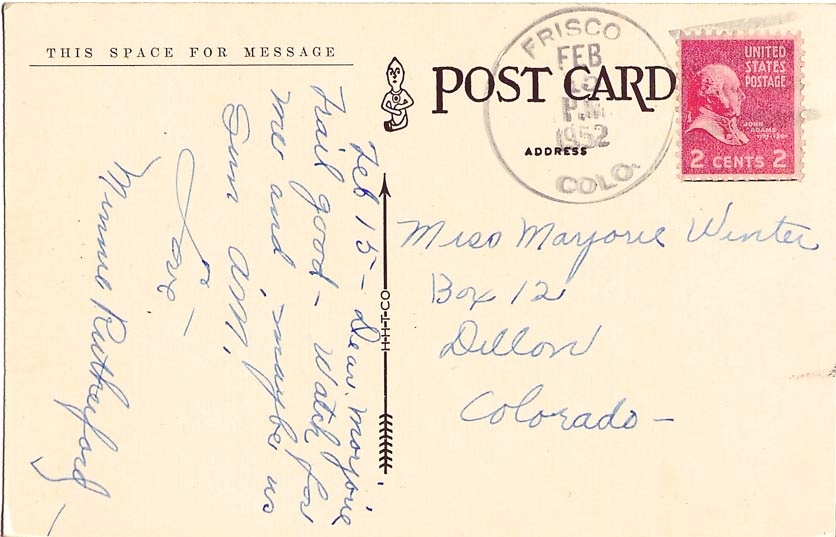 THIS SPACE FOR MESSAGE
Feb 15 - Dear Marjorie
Trail good - Watch for
me and maybe us
Sun A.M.
Love -
Minnie Rutherford -
H-H-T-CO
POST CARD
ADDRESS
FRISCO
FEB
15
P.M.
1952
COLO.
UNITED
STATES
POSTAGE
JOHN
ADAMS
2 CENTS 2
Miss Marjorie Winter
Box 12
Dillon
Colorado -